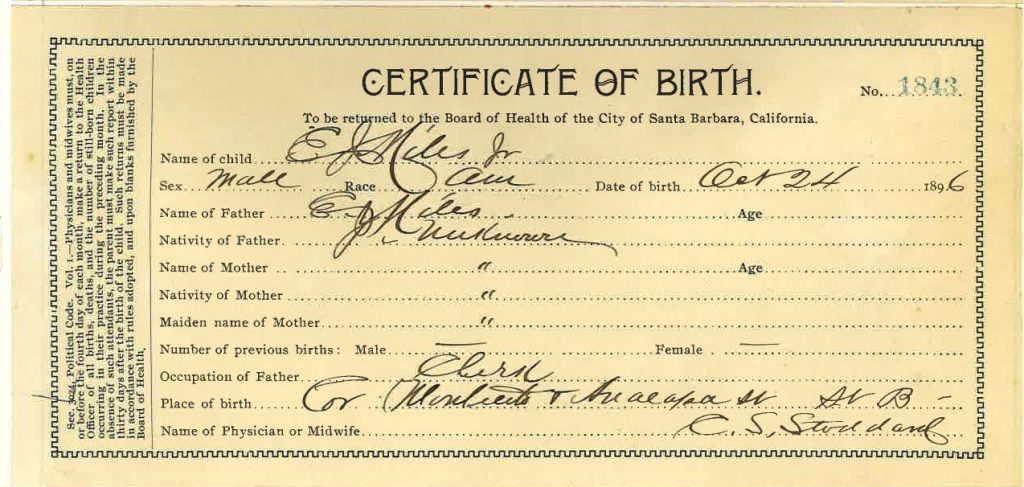 CERTIFICATE OF BIRTH.
No. 1843
To be returned to the Board of Health of the City of Santa Barbara, California.
Name of child E J Miles Jr
Sex Male Race Am Date of birth Oct 24 1896
Name of Father E J Miles Age
Nativity of Father. Unknown
Name of Mother " Age
Nativity of Mother "
Maiden name of Mother "
Number of previous births: Male — Female —
Occupation of Father Clerk
Place of birth Cor Montecito & Anacapa St St B -
Name of Physician or Midwife C. S. Stoddard
Sec. 3024, Political Code. Vol. 1.—Physicians and midwives must, on
or before the fourth day of each month, make a return to the Health
Officer of all births, deaths, and the number of still-born children
occurring in their practice during the preceding month. In the
absence of such attendants, the parent must make such report within
thirty days after the birth of the child. Such returns must be made
in accordance with rules adopted, and upon blanks furnished by the
Board of Health.